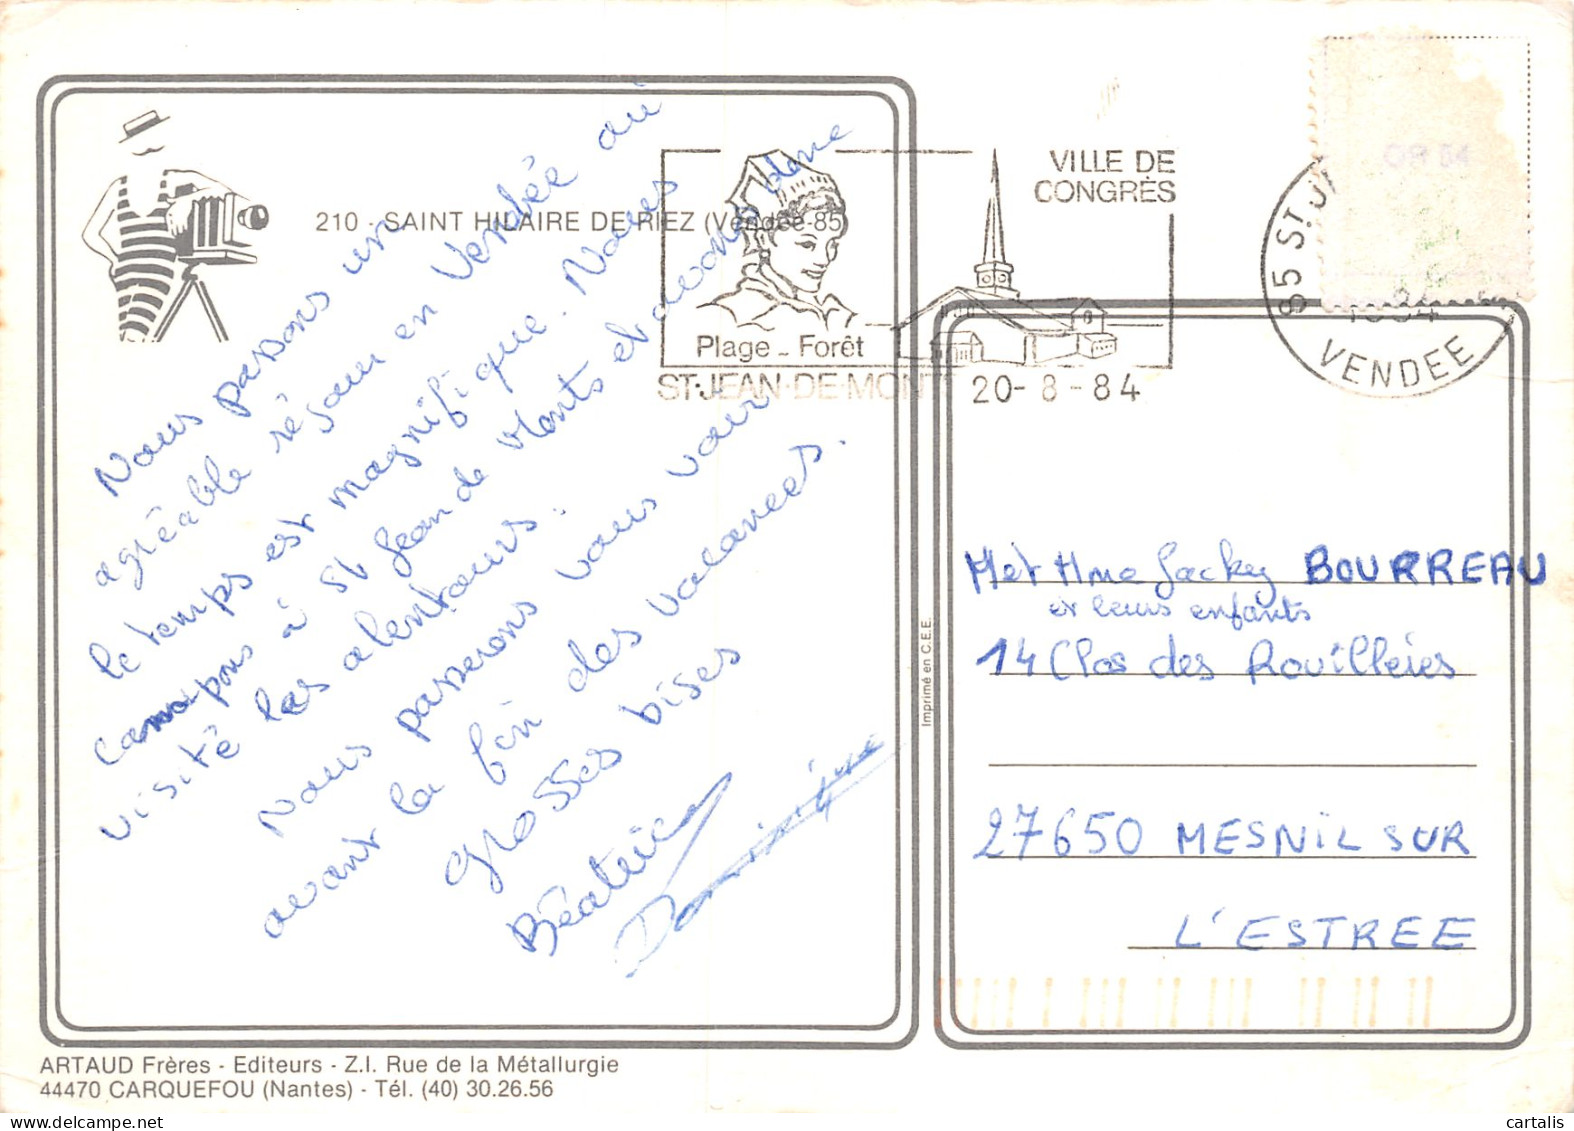 210 - SAINT HILAIRE DE RIEZ (Vendée-85)
Nous passons un
agréable séjour en Vendée où
le temps est magnifique. Nous
campons à St Jean de Monts et avons donc
visité les alentours.
Nous passerons vous voir
avant la fin des vacances.
grosses bises
Béatrice
Dominique
VILLE DE
CONGRÈS
Plage - Forêt
ST-JEAN-DE-MONTS
20-8-84
85 ST J
1984
VENDEE
M et Mme Jackey BOURREAU
et leurs enfants
14 Clos des Rouilleries
27650 MESNIL SUR
L'ESTREE
Imprimé en C.E.E.
ARTAUD Frères - Editeurs - Z.I. Rue de la Métallurgie
44470 CARQUEFOU (Nantes) - Tél. (40) 30.26.56
cartalis
www.delcampe.net